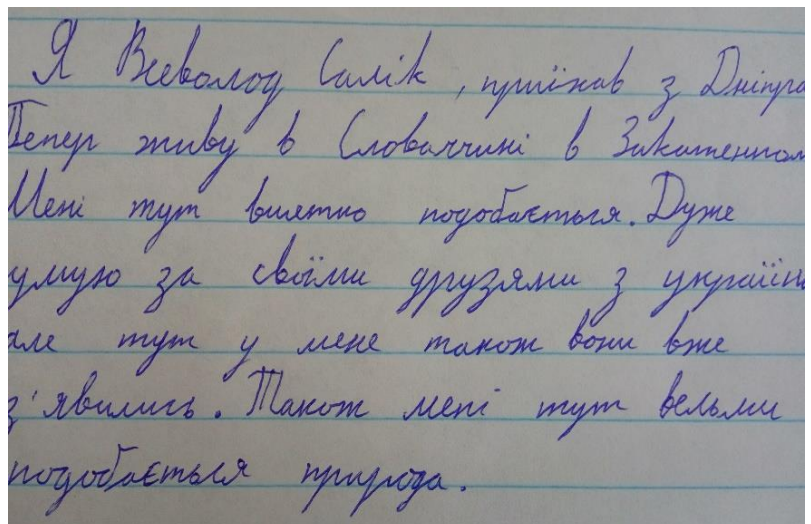 Я Всеволод Салік, приїхав з Дніпра
Тепер живу в Словаччині в Закаменном
Мені тут вцятно подобається. Дуже
умую за своїми друзями з україн
але тут у мене також вони вже
з'явились. Також мені тут вельми
подобається природа.